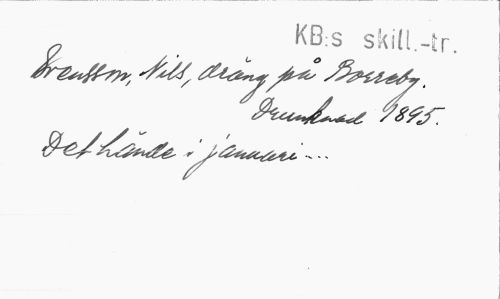 KB:s skill.-tr.
Svensson, Nils, dräng på Borreby.
Drunknad 1895.
Det hände i januari...